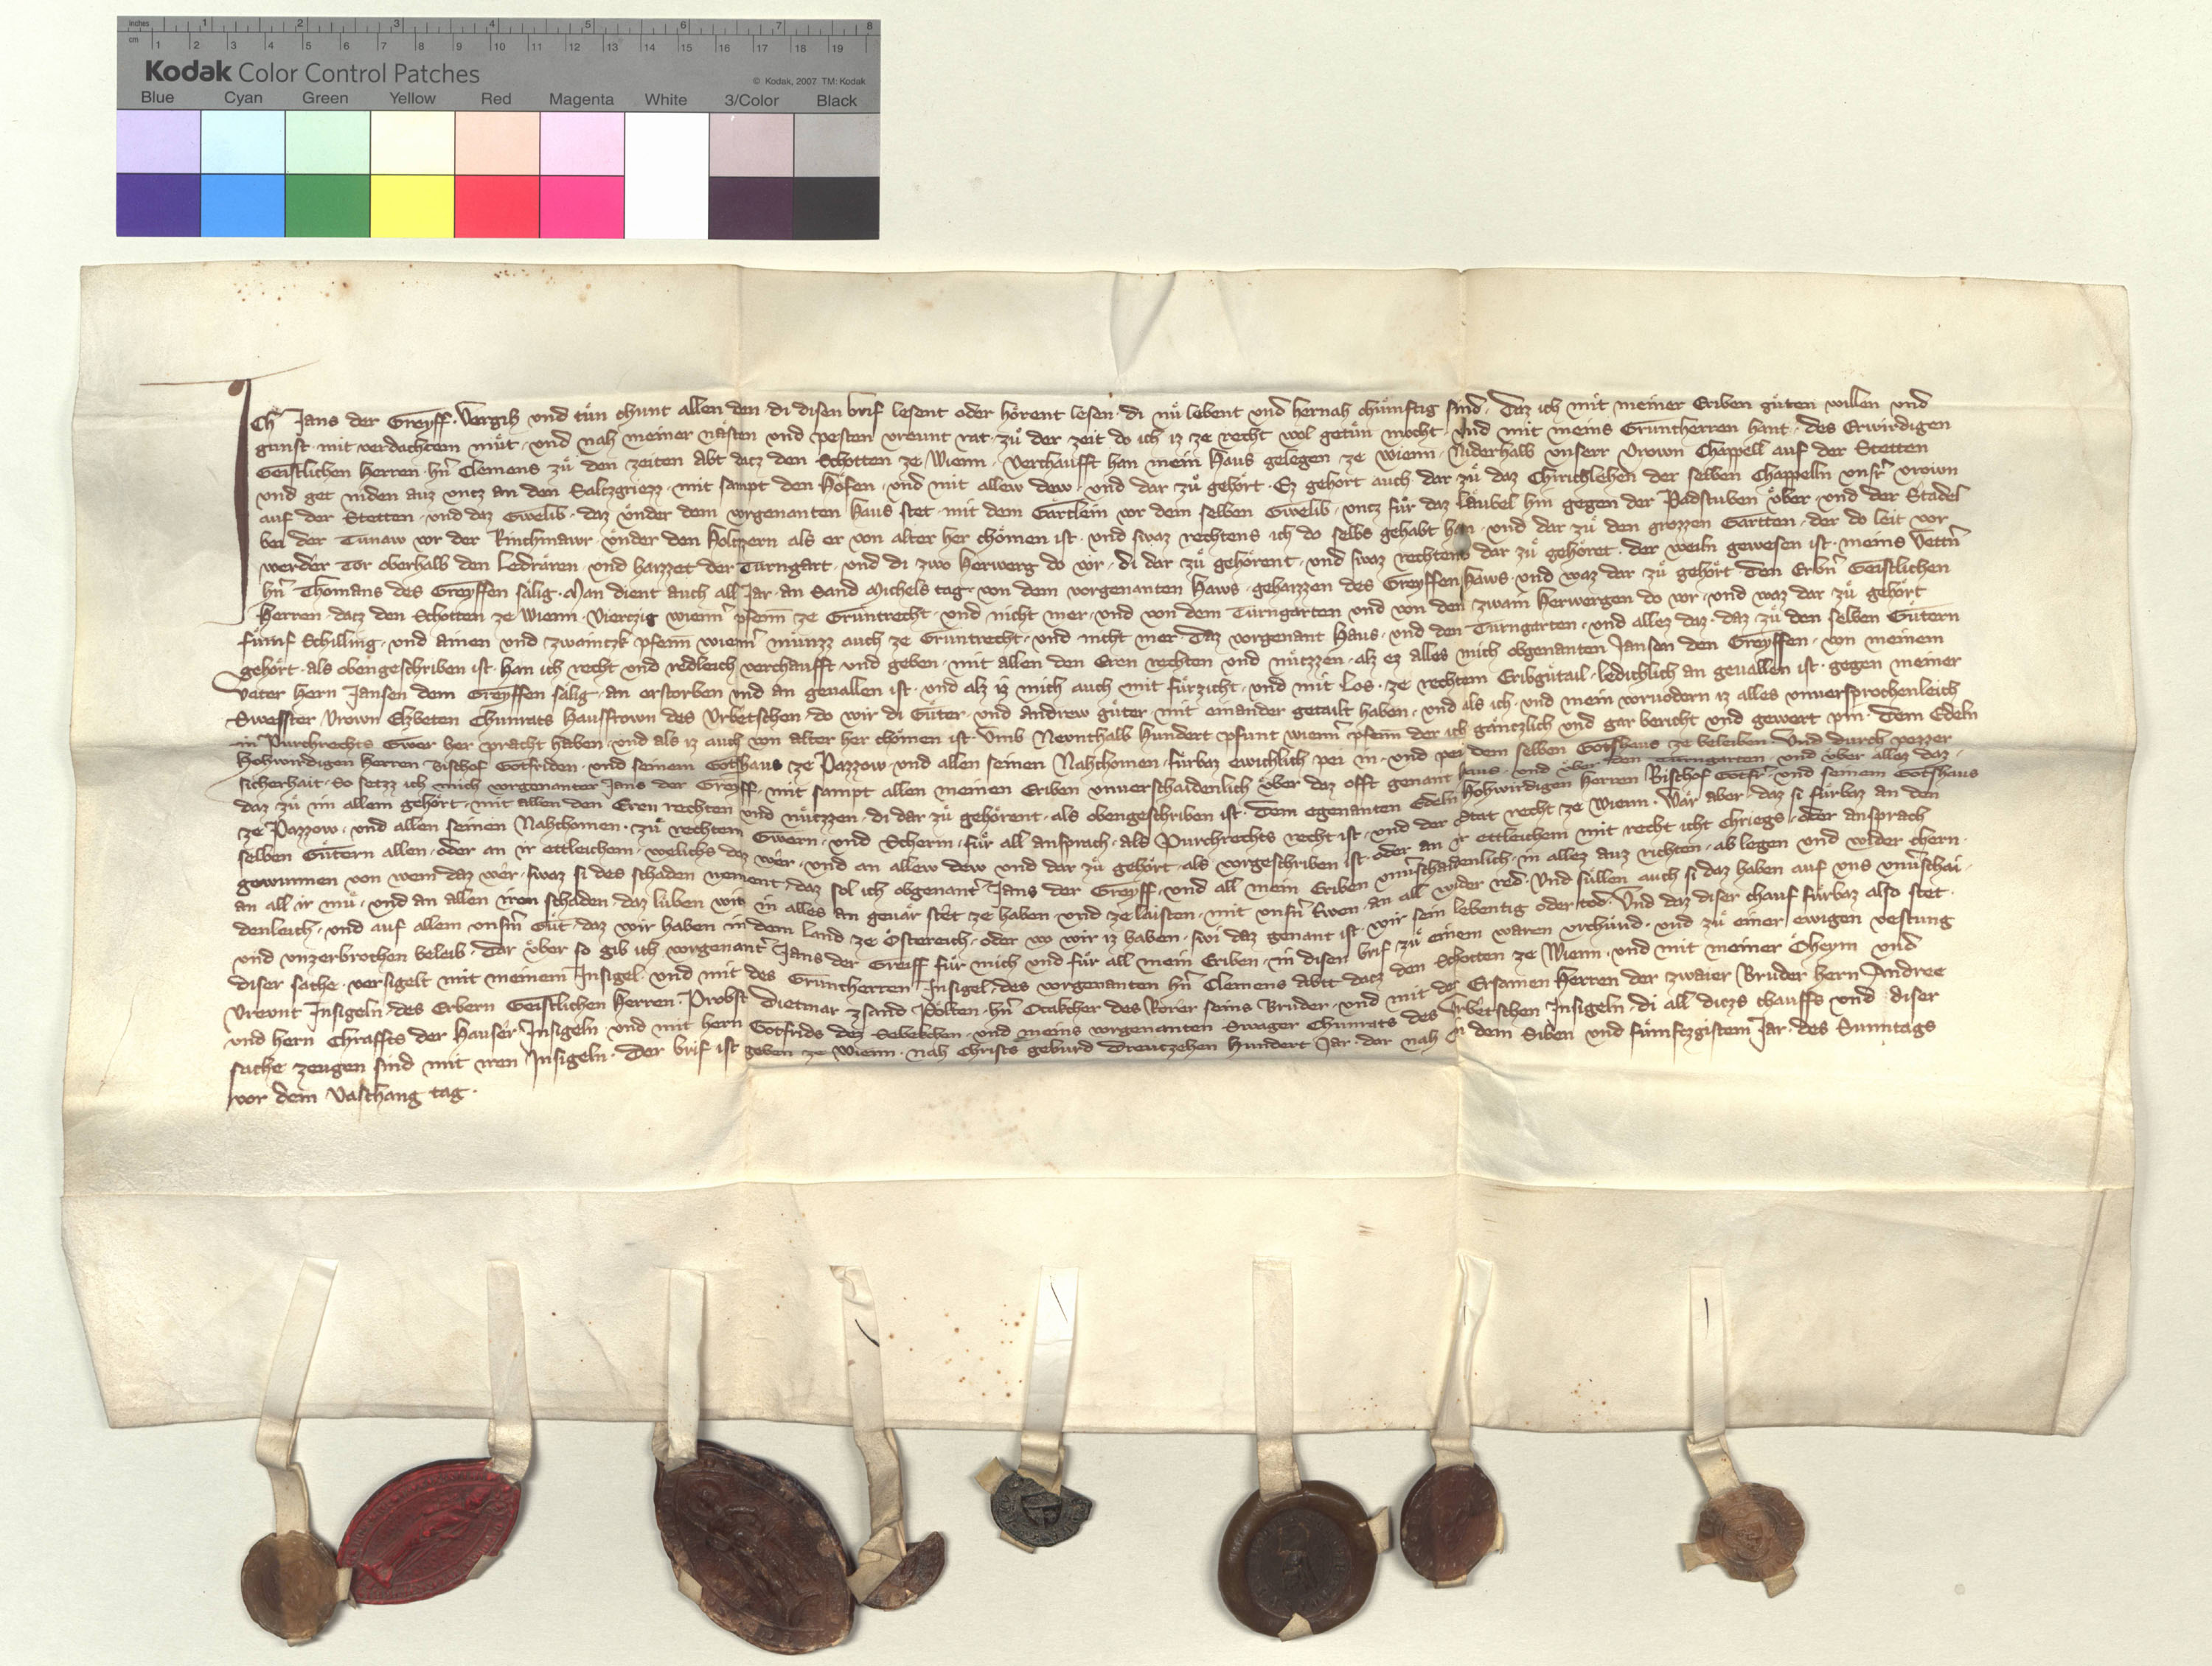 inches 1 2 3 4 5 6 7 8
cm 1 2 3 4 5 6 7 8 9 10 11 12 13 14 15 16 17 18 19
Kodak Color Control Patches © Kodak, 2007 TM: Kodak
Blue Cyan Green Yellow Red Magenta White 3/Color Black
Ich Jans der Greyff · Vergih und tůn chunt allen den · di disen brif lesent oder hörent lesen · di nů lebent und hernah chümftig sind · Daz ich mit meiner Eriben gůten willen und
gunst · mit verdachtem můt · und nah meiner nästen und pesten vreunt rat · zů der zeit do ich iz ze recht wol getůn mocht · und mit meins Gruntherren hant · des Erwirdigen
Geistlichen Herren · hn̄ Clemens zů den zeiten Abt datz den Schotten ze Wienn · Verchaufft han mein Haus gelegen ze Wienn · Niderhalb unserr Vrown Chappell auf der Stetten
und get niden auz untz an den Saltzgriezz · mit sampt den Höfen · und mit allew dew · und dar zů gehört · Ez gehört auch dar zů daz Chirichlehen der selben Chappelln unsr̄ vrown
auf der Stetten · und daz Gwelib · daz ůnder dem vorgenanten Haus stet · mit dem Gärtlein vor dem selben Gwelib · untz für daz läubel hin gegen der Padstuben über · und der Stadel
bei der Tunaw vor der Rinchmawr · ůnder den Holtzern als er von alter her chömen ist · und swaz rechtens ich do selbs gehabt han · und dar zů den grozzen Gartten · der do leit vor
werder Tor oberhalb den Ledrären · und haizzet der Turngart · und di zwo Herwerg do vor · di dar zů gehörent · und swaz rechtens dar zů gehöret · der weiln gewesen ist · meins Vettn̄
hn̄ Thomans des Greyffen sälig · Man dient auch all Jar · an Sand Michels tag · von dem vorgenanten Haws · gehaizzen des Greyffen Haws · und waz dar zů gehört · den Erbn̄ Geistlichen
Herren · datz den Schotten ze Wienn · Vierczig wienn̄ phenn̄ ze Gruntrecht · und nicht mer · und von dem Turngarten und von den zwain Herwergen do vor · und waz dar zů gehört
fümf Schilling · und ainen und zwaintzk phenn̄ wienn̄ münzz auch ze Gruntrecht · und nicht mer · Daz vorgenant Haus · und den Turngarten · und allez daz · daz zů den selben Gütern
gehört · als obengeschriben ist · han ich recht und redleich verchaufft und geben · mit allen den Eren rechten und nützzen · alz ez alles mich obgenanten Jansen den Greyffen · von meinem
Vater Hern Jansen dem Greyffen sälig · an erstorben und an gevallen ist · und alz iz mich auch mit fürzicht · und mit Los · ze rechtem Eribgůtail · ledichlich an gevallen ist · gegen meiner
Swesster Vrown Elzbeten Chunrats Hausfrown des Urbetschen · do wir di Güter · und Andrew güter · mit einander getailt haben · und als ich · und mein vorvodern iz alles unversprochenleich
in Purchrechts Gwer her pracht haben · und als iz auch von alter her chömen ist · Umb Nevnthalb Hundert phunt wienn̄ phenn̄ der ich gäntzlich und gar bericht und gewert pin · Dem Edeln
Hohwirdigen Herren Bischof Gotfriden · und seinem Gotshaus ze Pazzow · und allen seinen Nahchomen · fürbaz ewichlich pei in · und pei dem selben Gotshaus ze beleiben · Und durch pezzer
sicherhait · So setzz ich mich vorgenanter Jans der Greyff · mit sampt allen meinen Eriben unverschaidenlich über daz offt genant haus · und über den Turngarten · und über allez daz ·
daz zů im allem gehört · mit allen den Eren rechten und nützzen · di dar zů gehörent · als obengeschriben ist · Dem egenanten Edeln Hohwirdigen Herren Bischof Gotfr̄ · und seinem Gotshaus
ze Pazzow · und allen seinen Nahchomen · zů rechtem Gwern · und Scherm · für all ansprach · als Purchrechts recht ist · und der Stat recht ze Wienn · Wär aber · daz si fürbaz an den
selben Gütern allen · oder an ir ettleichem · welichs daz wer · und an allew dew und dar zů gehört · als vorgeschriben ist · oder an ir ettleichem mit recht icht chriegs · oder ansprach
gewunnen von wem daz wer · swaz si des schaden nement · daz sol ich obgenant̄ Jans der Greyff · und all mein Eriben unv̄schadenlich · in allez auz richten · ab legen und wider chern ·
an all ir mů · und an allen iren schaden · daz luben wir in alles an gevär stet ze haben · und ze laisten · mit unsn̄ trwen · an all wider red · Und süllen auch si daz haben auf uns unv̄schai-
denleich · und auf allem unsm̄ Gůt · daz wir haben in dem Land ze Ostereich · oder wo wir iz haben · swi daz genant ist · wir sein lebentig oder tod · Und daz diser chauf fürbaz also stet ·
und unzerbrochen beleib · Dar über so gib ich vorgenant̄ Jans der Greiff für mich und für all mein Eriben · in disen brif · zů einem waren urchünd · und zů einer ewigen vestung
diser sache · versigelt mit meinem Insigel · und mit des Gruntherren Insigel · des vorgenanten hn̄ Clemens abtt datz den Schotten ze Wienn · und mit meiner Öheym und
Vreunt Insigeln · des Erbern Geistlichen Herren · Probst Dietmar z sand Pölten · hn̄ Otakcher des Rorer seins Bruder · und mit der Ersamen Herren der zwaier Bruder hern Andree
und hern Chraffts der Hauser Insigeln und mit hern Gotfrids dez · und meins vorgenanten Swager Chunrats des Urbetschen Insigeln · di all diczs chauffs und diser
sache zeugen sind mit iren Insigeln · Der brif ist geben ze Wienn · nah Christs geburd Dreutzehen Hundert Jar · dar nah in dem Siben und fümftzgistem Jar · des Sunntags
vor dem Vaschang tag ·